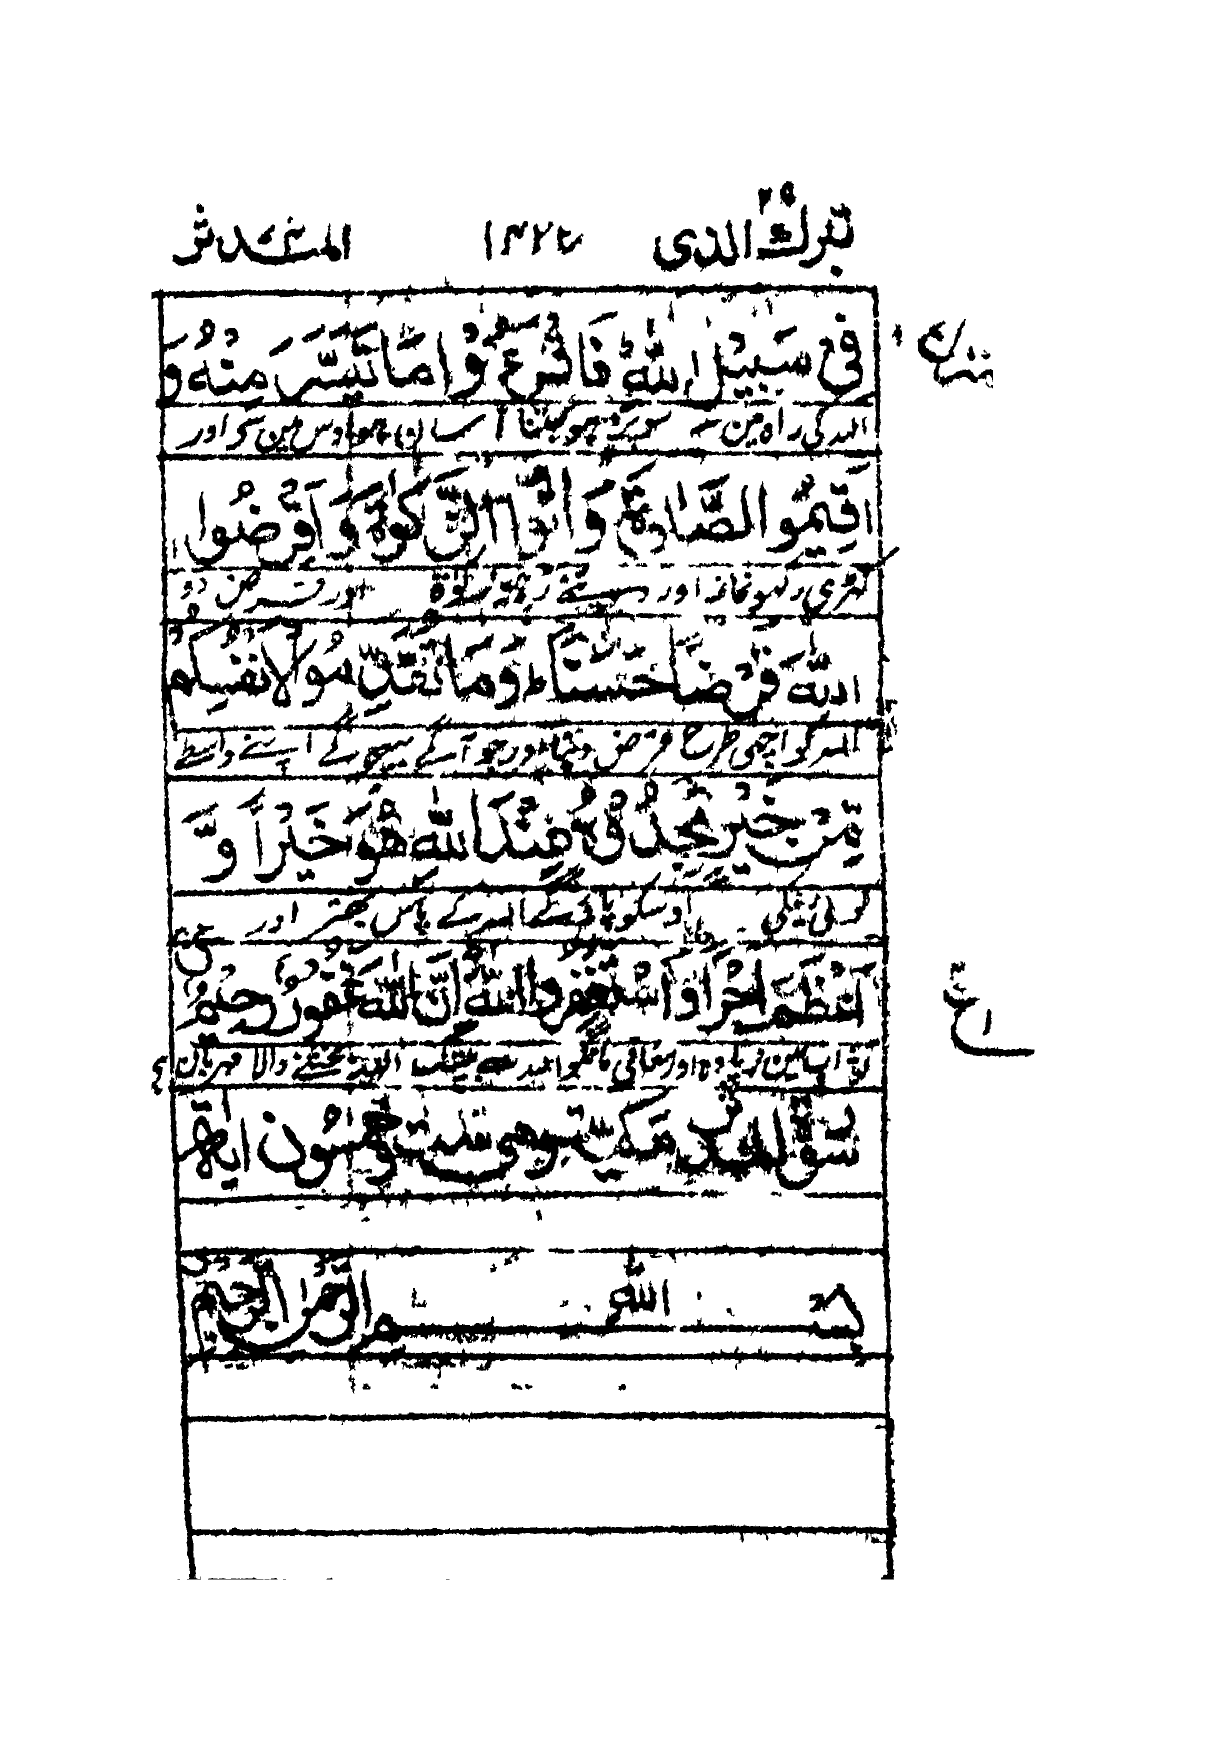 تبرك الذی ۲۹ ۱۴۲۷ المدثر
فِیْ سَبِیْلِ اللّٰهِ فَاقْرَءُوْا مَا تَیَسَّرَ مِنْهُ وَ
اللہ کی راہ مین سو پڑہو جتنا آسان ہو اوس مین سے اور
اَقِیْمُوا الصَّلٰوةَ وَاٰتُوا الزَّكٰوةَ وَاَقْرِضُوا
کھڑی رکہو نماز اور دیتے رہو زکوٰة اور قرض دو
اللّٰهَ قَرْضًا حَسَنًا ط وَمَا تُقَدِّمُوْا لِاَنْفُسِكُمْ
اللہ کو اچھی طرح قرض دینا اور جو آگے بھیجو گے اپنے واسطے
مِّنْ خَیْرٍ تَجِدُوْهُ عِنْدَ اللّٰهِ هُوَ خَیْرًا وَّ
کوئی نیکی اوسکو پاؤ گے اللہ کے پاس بہتر اور
اَعْظَمَ اَجْرًا وَاسْتَغْفِرُوا اللّٰهَ اِنَّ اللّٰهَ غَفُوْرٌ رَّحِیْمٌ
ثواب مین زیادہ اور معافی مانگو اللہ سے بیشک اللہ بخشنے والا مہربان ہے
سورة المدثر مكیة وهی ست وخمسون اية
بسم الله الرحمن الرحیم
ع